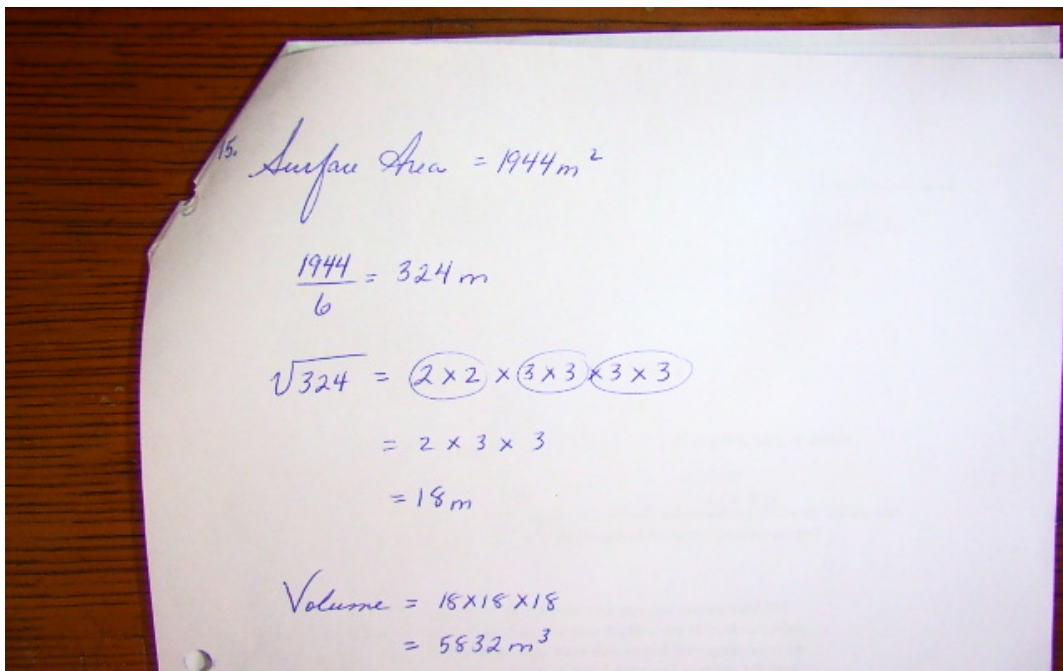 15. Surface Area = 1944 m²
1944/6 = 324 m
√324 = 2 × 2 × 3 × 3 × 3 × 3
= 2 × 3 × 3
= 18 m
Volume = 18 × 18 × 18
= 5832 m³